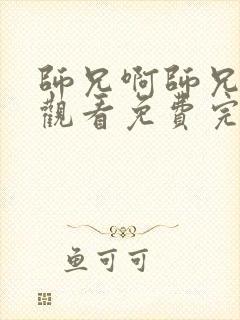 師兄啊師兄
觀看免費完
鱼可可